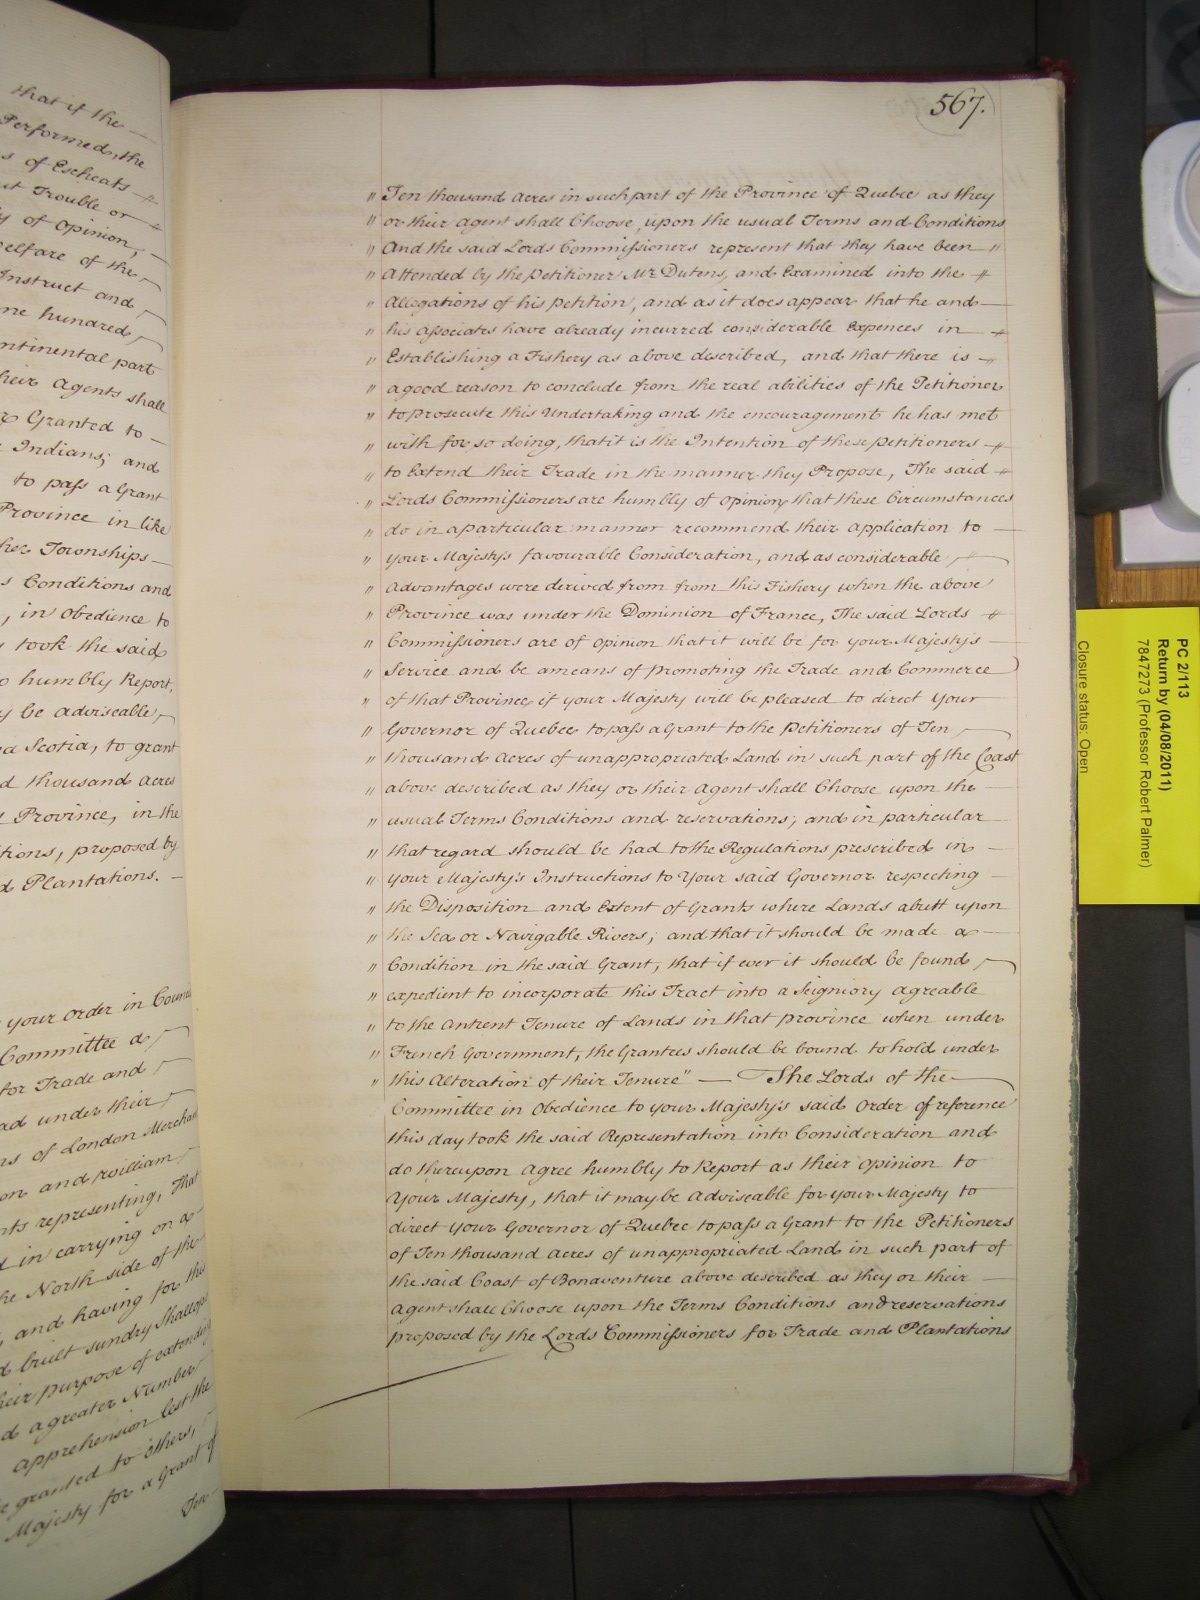 that if the
Performed, the
s of Escheats
ut Trouble or
of Opinion,
elfare of the
Instruct and
ne hundred
ntinental part
heir Agents shall
Granted to
Indians; and
to pass a Grant
Province in like
her Townships
s Conditions and
, in Obedience to
took the said
humbly Report,
y be adviseable
a Scotia, to grant
d thousand acres
Province, in the
tions, proposed by
d Plantations.
your Order in Counc
Committee a
for Trade and
ad under their
ns of London Merchan
on and William
nts representing, that
d in carrying on a
he North side of the
, and having for this
d built sundry Shallops
heir purpose of extending
d a greater Number
apprehension lest the
e granted to others,
Majesty for a Grant of
Ten
567.
" Ten thousand Acres in such part of the Province of Quebec as they
" or their Agent shall Choose, upon the usual Terms and Conditions
" And the said Lords Commissioners represent that they have been
" Attended by the Petitioner Mr. Dutens, and Examined into the
" Allegations of his petition, and as it does appear that he and
" his associates have already incurred considerable Expences in
" Establishing a Fishery as above described, and that there is
" a good reason to conclude from the real abilities of the Petitioner
" to prosecute this Undertaking and the encouragement he has met
" with for so doing, that it is the Intention of these petitioners
" to Extend their Trade in the manner they Propose, The said
" Lords Commissioners are humbly of opinion, that these Circumstances
" do in a particular manner recommend their application to
" your Majesty's favourable Consideration, and as considerable
" Advantages were derived from from this Fishery when the above
" Province was under the Dominion of France, The said Lords
" Commissioners are of opinion that it will be for your Majesty's
" Service and be a means of promoting the Trade and Commerce
" of that Province, if your Majesty will be pleased to direct your
" Governor of Quebec to pass a Grant to the Petitioners of Ten
" thousand Acres of unappropriated Land in such part of the Coast
" above described as they or their Agent shall Choose upon the
" usual Terms Conditions and reservations; and in particular
" that regard should be had to the Regulations prescribed in
" your Majesty's Instructions to Your said Governor respecting
" the Disposition and Extent of Grants where Lands abutt upon
" the Sea or Navigable Rivers; and that it should be made a
" Condition in the said Grant, that if ever it should be found
" expedient to incorporate this Tract into a Seigniory agreable
" to the Antient Tenure of Lands in that province when under
" French Government, the Grantees should be bound to hold under
" this Alteration of their Tenure" — The Lords of the
Committee in Obedience to your Majesty's said Order of reference
this day took the said Representation into Consideration and
do thereupon Agree humbly to Report as their opinion to
Your Majesty, that it may be Adviseable for your Majesty to
direct your Governor of Quebec to pass a Grant to the Petitioners
of Ten thousand Acres of unappropriated Land in such part of
the said Coast of Bonaventure above described as they or their
Agent shall Choose upon the Terms Conditions and reservations
proposed by the Lords Commissioners for Trade and Plantations
PC 2/113
Return by (04/08/2011)
7847273 (Professor Robert Palmer)
Closure status: Open